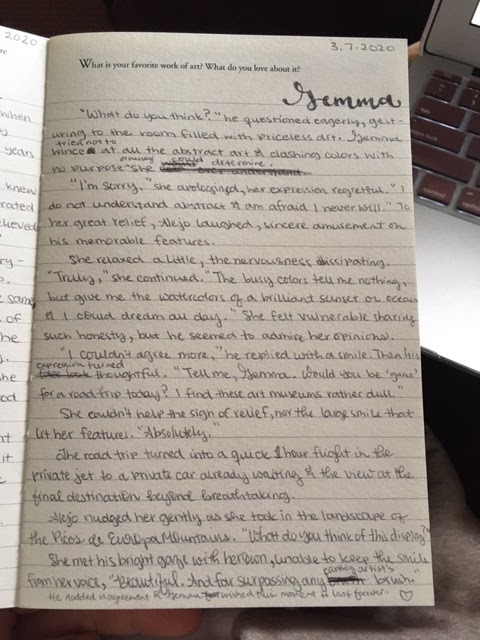 2020
3.7.2020
What is your favorite work of art? What do you love about it?
Gemma
"What do you think?" he questioned eagerly, gest-
uring to the room filled with priceless art. Gemma
tried not to
wince at all the abstract art & clashing colors with
or musing could determine.
no purpose she ever understand.
"I'm sorry," she apologized, her expression regretful. "I
do not understand abstract & am afraid I never will." To
her great relief, Alejo laughed, sincere amusement on
his memorable features.
She relaxed a little, the nervousness dissipating.
"Truly," she continued. "The busy colors tell me nothing,
but give me the watercolors of a brilliant sunset or ocean
& I could dream all day." She felt vulnerable sharing
such honesty, but he seemed to admire her opinions.
"I couldn't agree more," he replied with a smile. Then his
expression turned
face look thoughtful. "Tell me, Gemma. Would you be 'game'
for a road trip today? I find these art museums rather dull."
She couldn't help the sigh of relief, nor the large smile that
lit her features. "Absolutely."
The road trip turned into a quick 1 hour flight in the
private jet to a private car already waiting & the view at the
final destination beyond breathtaking.
Alejo nudged her gently as she took in the landscape of
the Picos de Europa Mountains. "What do you think of this display?"
She met his bright gaze with her own, unable to keep the smile
earthly artist's
from her voice, "Beautiful. And far surpassing any brush."
He nodded in agreement & Gemma wished this moment to last forever.
when
years
knew
believed
same
of
she
it